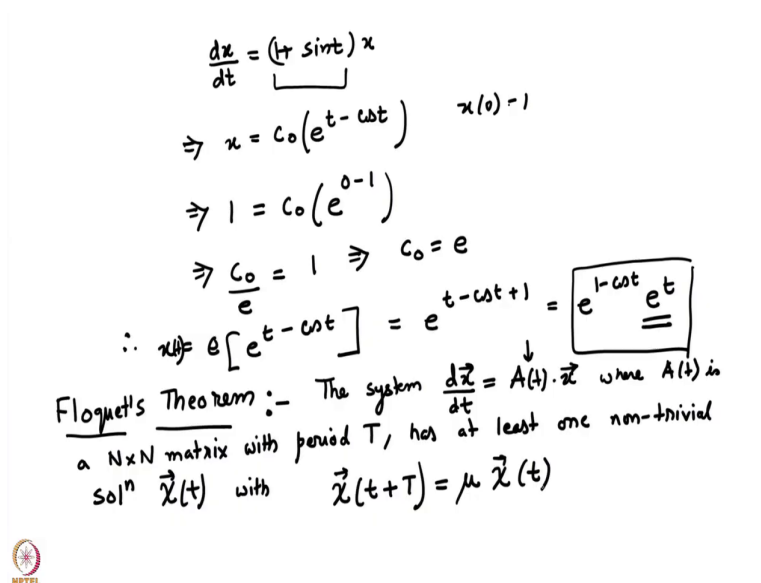 dx/dt = (1+ sint) x
⇒ x = C₀(e^{t - cost}) x(0) = 1
⇒ 1 = C₀(e^{0-1})
⇒ C₀/e = 1 ⇒ C₀ = e
∴ x(t)= e[e^{t - cost}] = e^{t - cost + 1} = e^{1-cost} e^t
Floquet's Theorem :- The system dx⃗/dt = A(t).x⃗ where A(t) is
a N×N matrix with period T, has at least one non-trivial
solⁿ χ⃗(t) with χ⃗(t+T) = μ χ⃗(t)
NPTEL